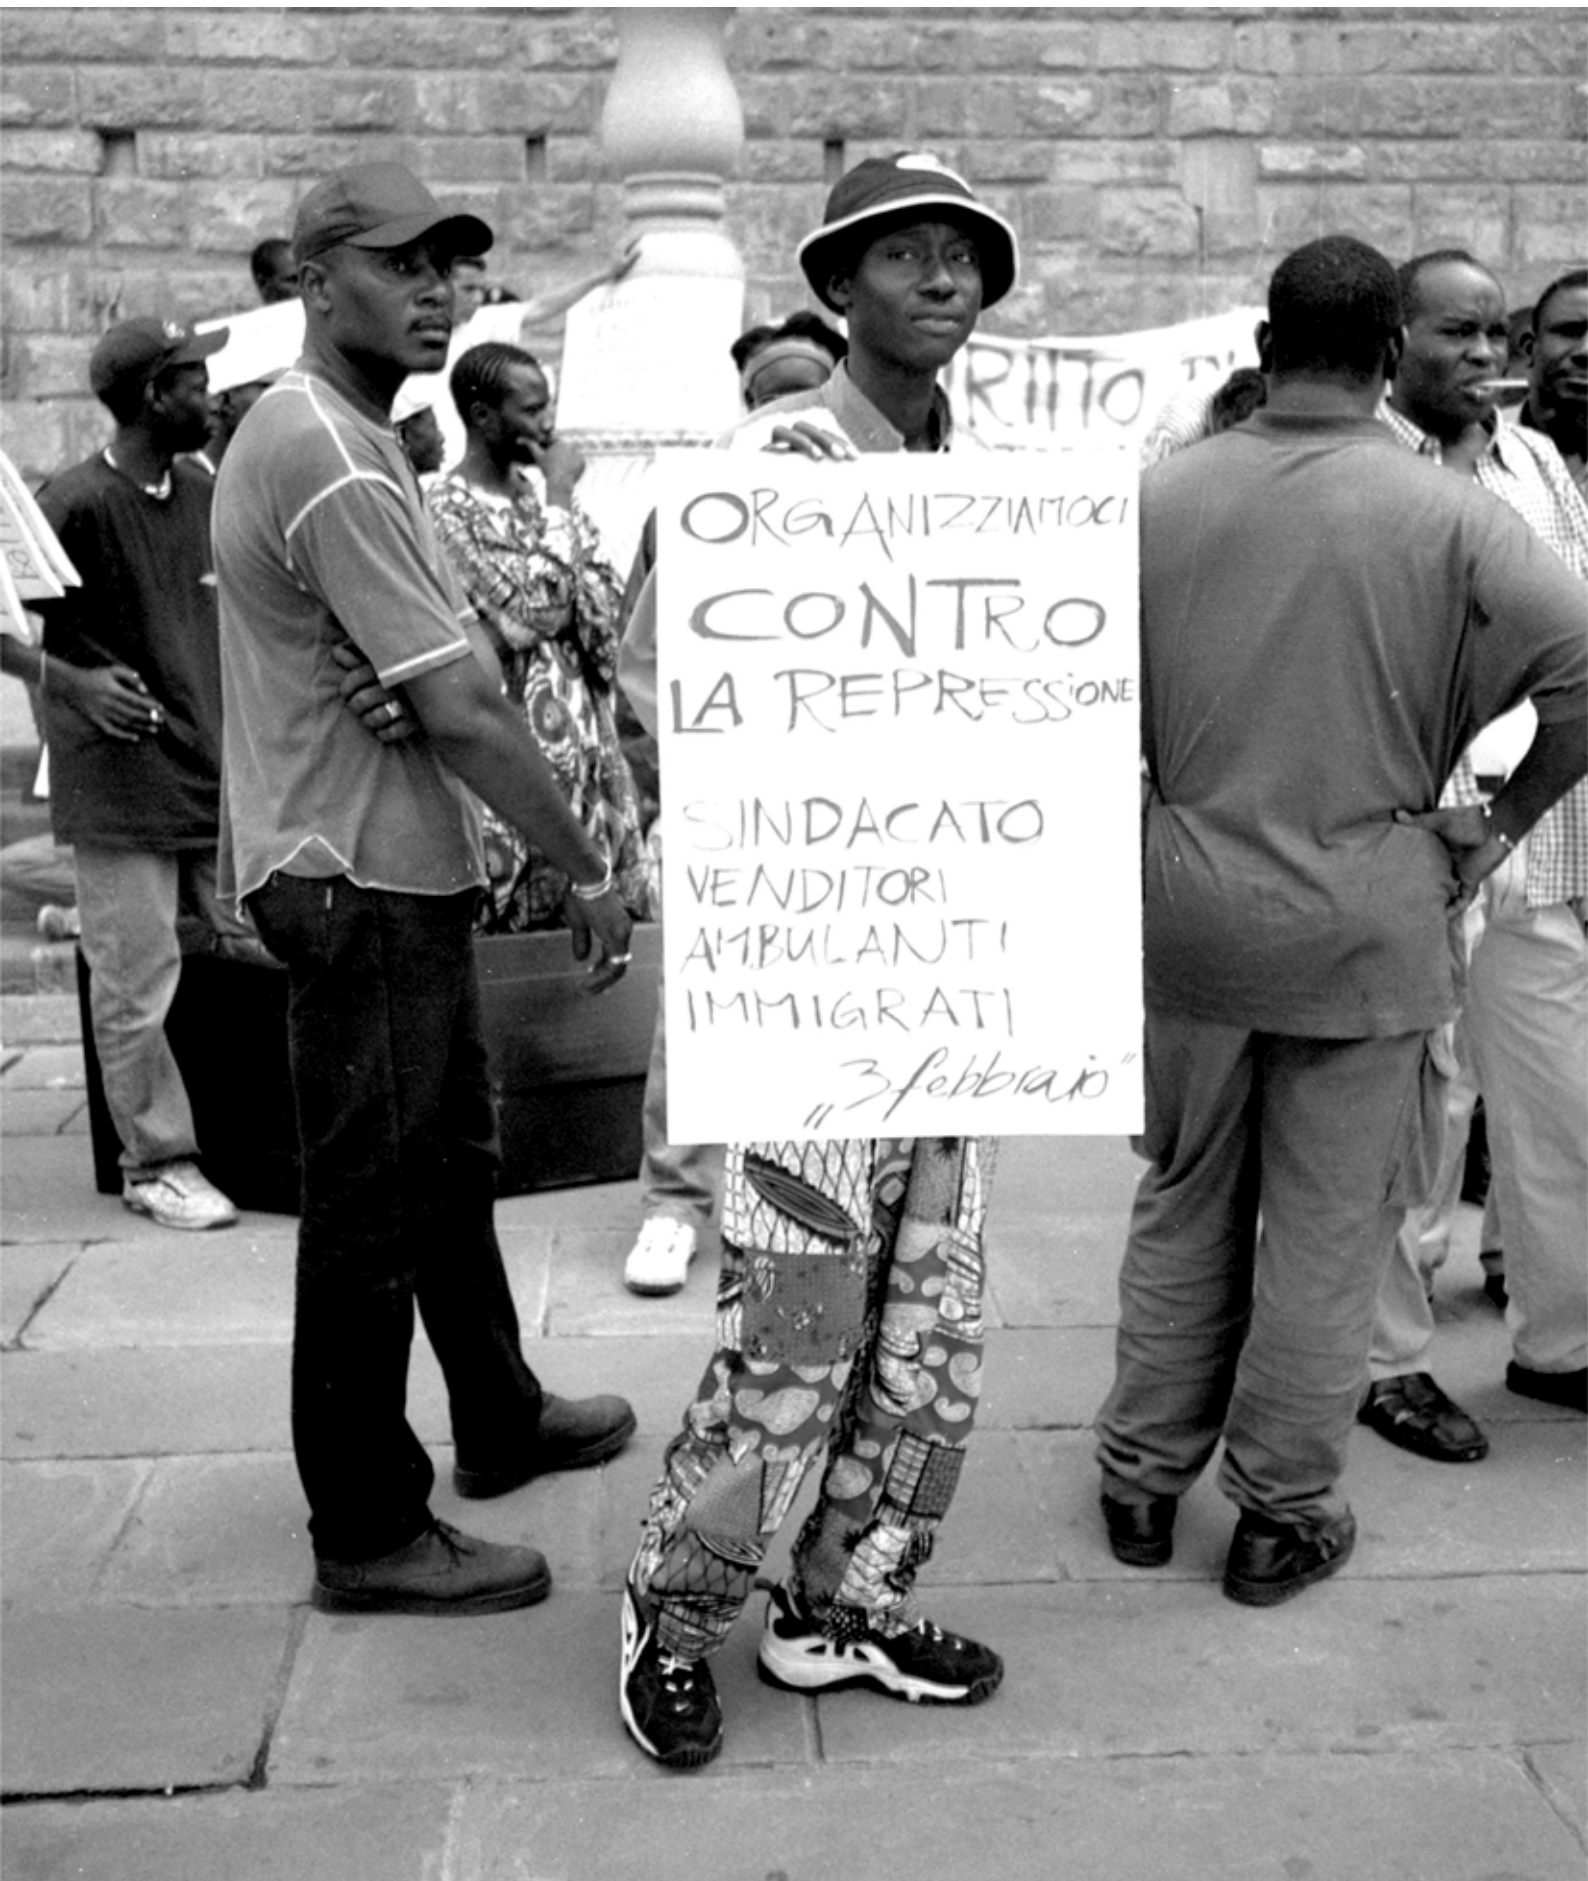 ORGANIZZIAMOCI
CONTRO
LA REPRESSIONE
SINDACATO
VENDITORI
AMBULANTI
IMMIGRATI
„3 febbraio"